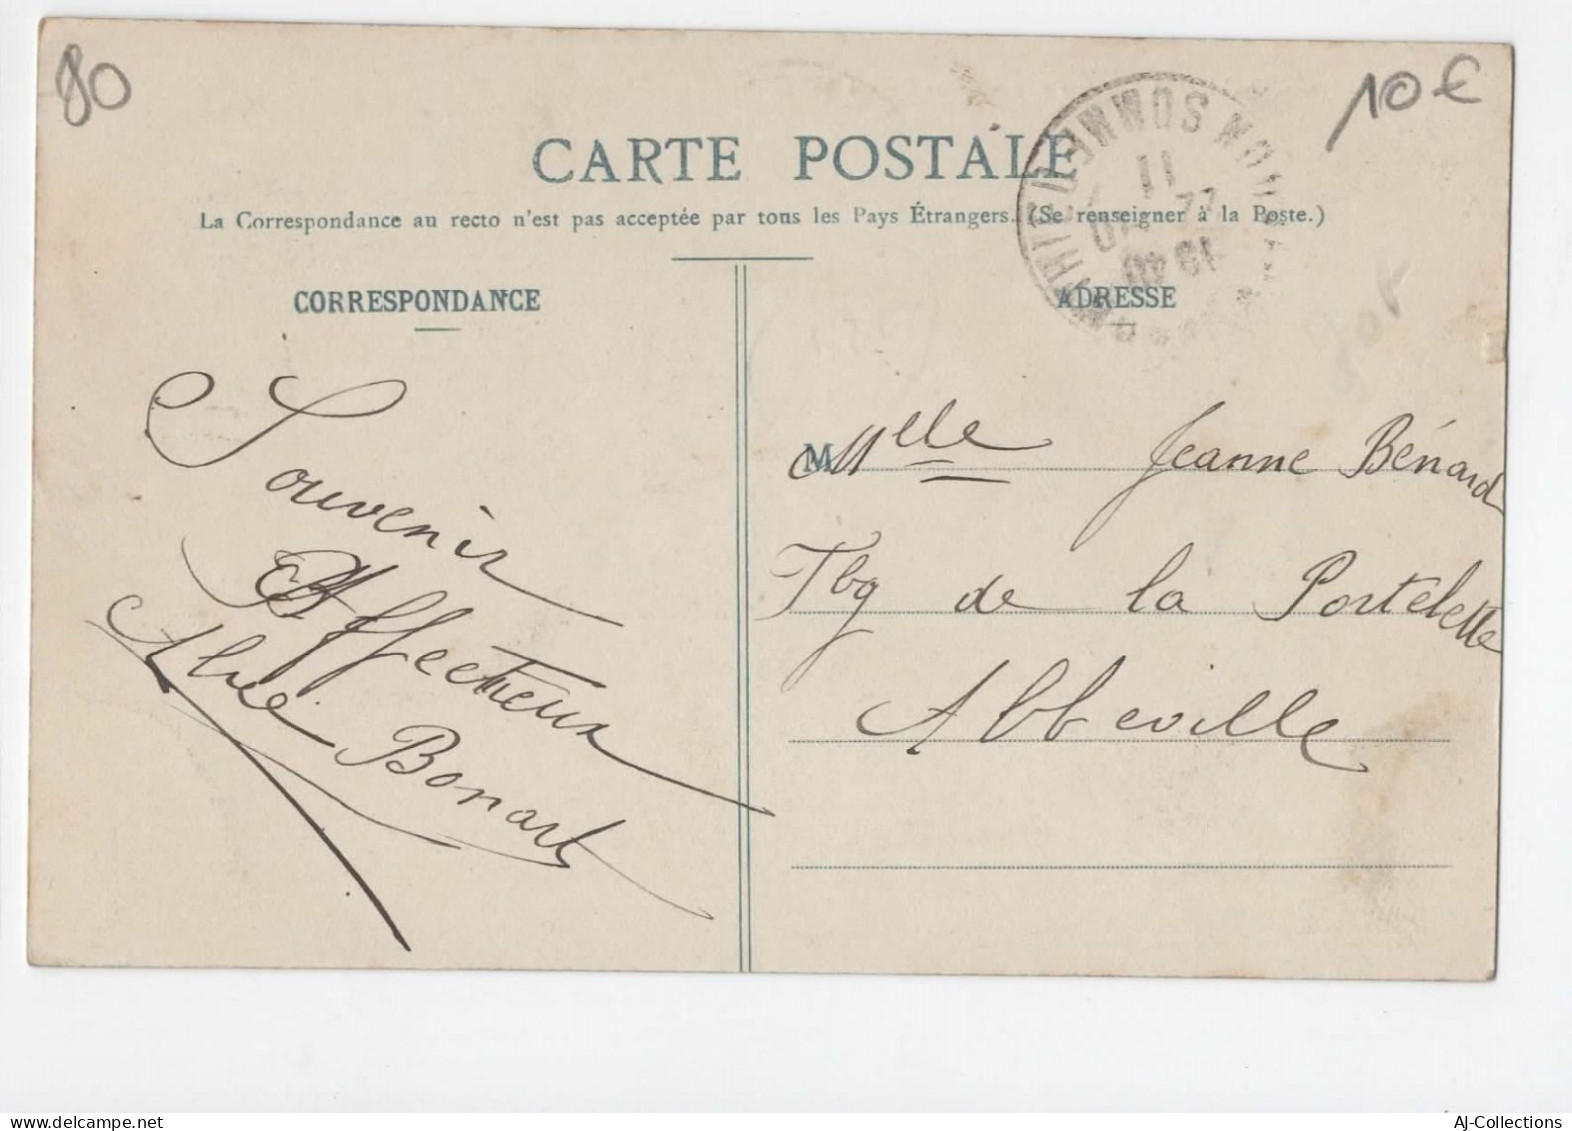 80
10€
CARTE POSTALE
La Correspondance au recto n'est pas acceptée par tous les Pays Étrangers. (Se renseigner à la Poste.)
CORRESPONDANCE
ADRESSE
Souvenir
Affectueux
Bonart
M Mlle Jeanne Bénard
Fbg de la Portelette
Abbeville
AJ-Collections